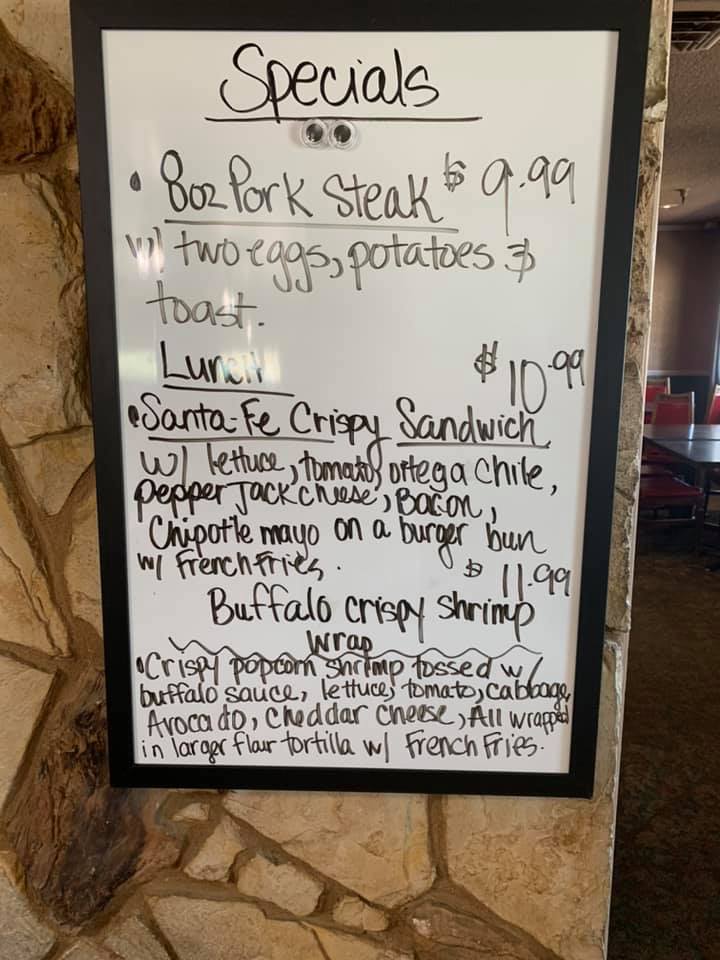 Specials
• 8oz Pork Steak $9.99
w/ two eggs, potatoes &
toast.
Lunch $10.99
• Santa-Fe Crispy Sandwich
w/ lettuce, tomato, ortega chile,
pepper Jack cheese, Bacon,
Chipotle mayo on a burger bun
w/ French Fries.
$11.99
Buffalo crispy shrimp
wrap
• Crispy popcorn shrimp tossed w/
buffalo sauce, lettuce, tomato, cabbage,
Avocado, cheddar cheese, All wrapped
in larger flour tortilla w/ French Fries.